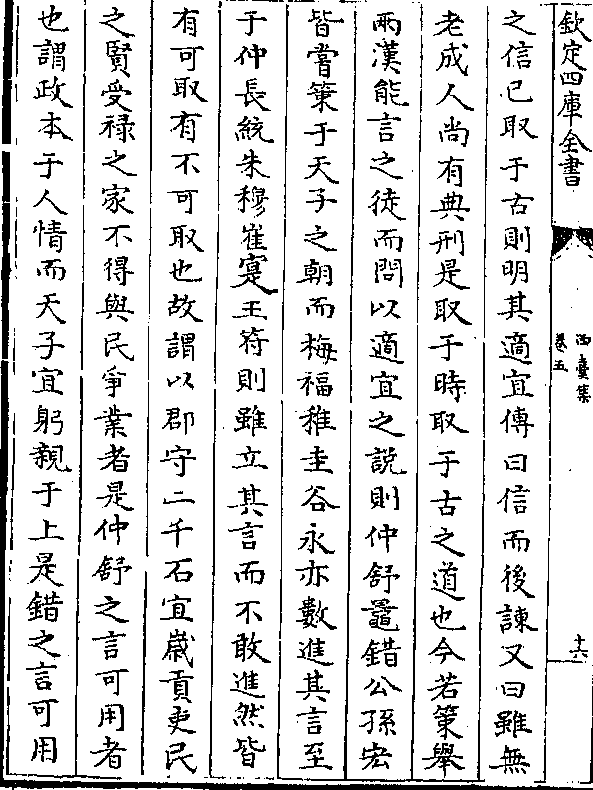 欽定四庫全書
西臺集
卷五
十六
之信已取于古則明其適宜傳曰信而後諫又曰雖無
老成人尚有典刑是取于時取于古之道也今若策舉
兩漢能言之徒而問以適宜之說則仲舒鼂錯公孫宏
皆嘗策于天子之朝而梅福稚圭谷永亦數進其言至
于仲長統朱穆崔寔王符則雖立其言而不敢進然皆
有可取有不可取也故謂以郡守二千石宜歲貢吏民
之賢受祿之家不得與民爭業者是仲舒之言可用者
也謂政本于人情而天子宜躬親于上是錯之言可用